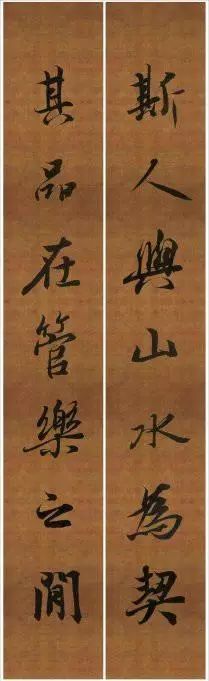 斯人與山水為契
其品在管樂之間